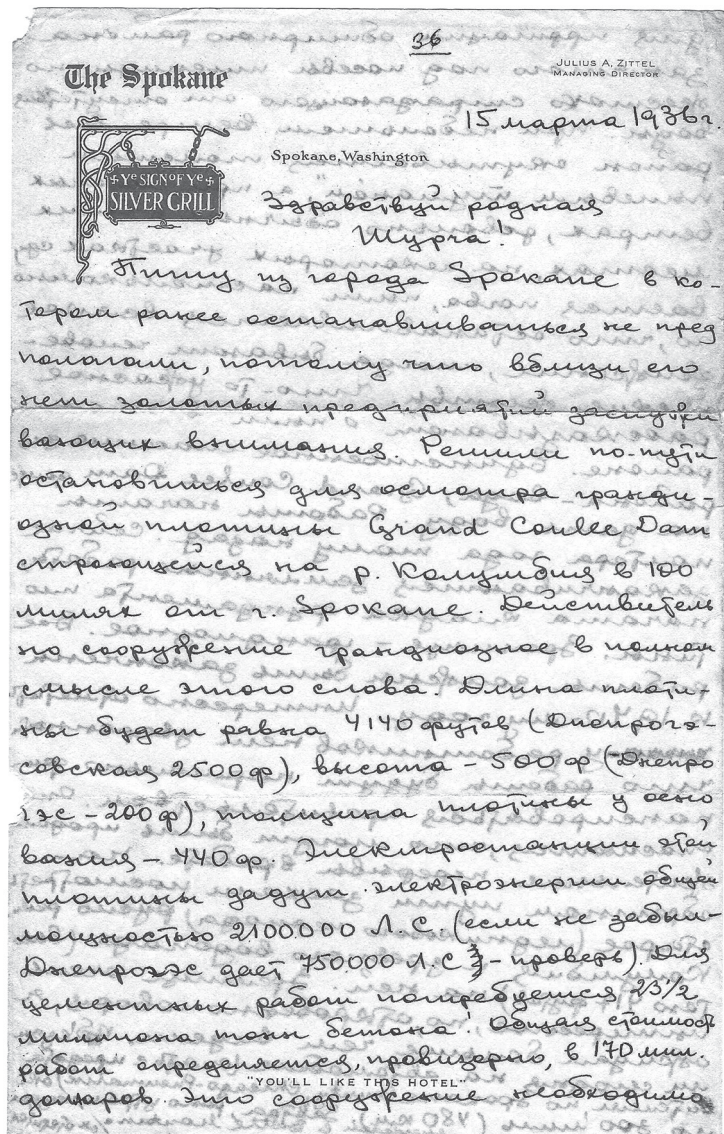 36
The Spokane
JULIUS A. ZITTEL
MANAGING DIRECTOR
15 марта 1936 г.
Spokane, Washington
YE SIGN OF YE
SILVER GRILL
Здравствуй родная
Шурча!
Пишу из города Spokane в ко-
тором ранее останавливаться не пред
полагали, потому что вблизи его
нет золотых предприятий заслужи
вающих внимания. Решили по-пути
остановиться для осмотра гранди-
озной плотины Grand Coulee Dam
строющейся на р. Колумбия в 100
милях от г. Spokane. Действитель
но сооружение грандиозное в полном
смысле этого слова. Длина плоти-
ны будет равна 4140 футов (Днепрогэ-
совская 2500 ф), высота - 500 ф (Днепро
гэс - 200 ф), толщина плотины у осно
вания - 440 ф. Электростанции этой
плотины дадут электроэнергии общей
мощностью 2100000 Л.С. (если не забыл-
Днепрогэс дает 750000 Л.С - проверь). Для
цементных работ потребуется 23 1/2
миллиона тонн бетона! Общая стоимость
работ определяется, провизорно, в 170 мил.
долларов. Это сооружение необходимо
"YOU'LL LIKE THIS HOTEL"